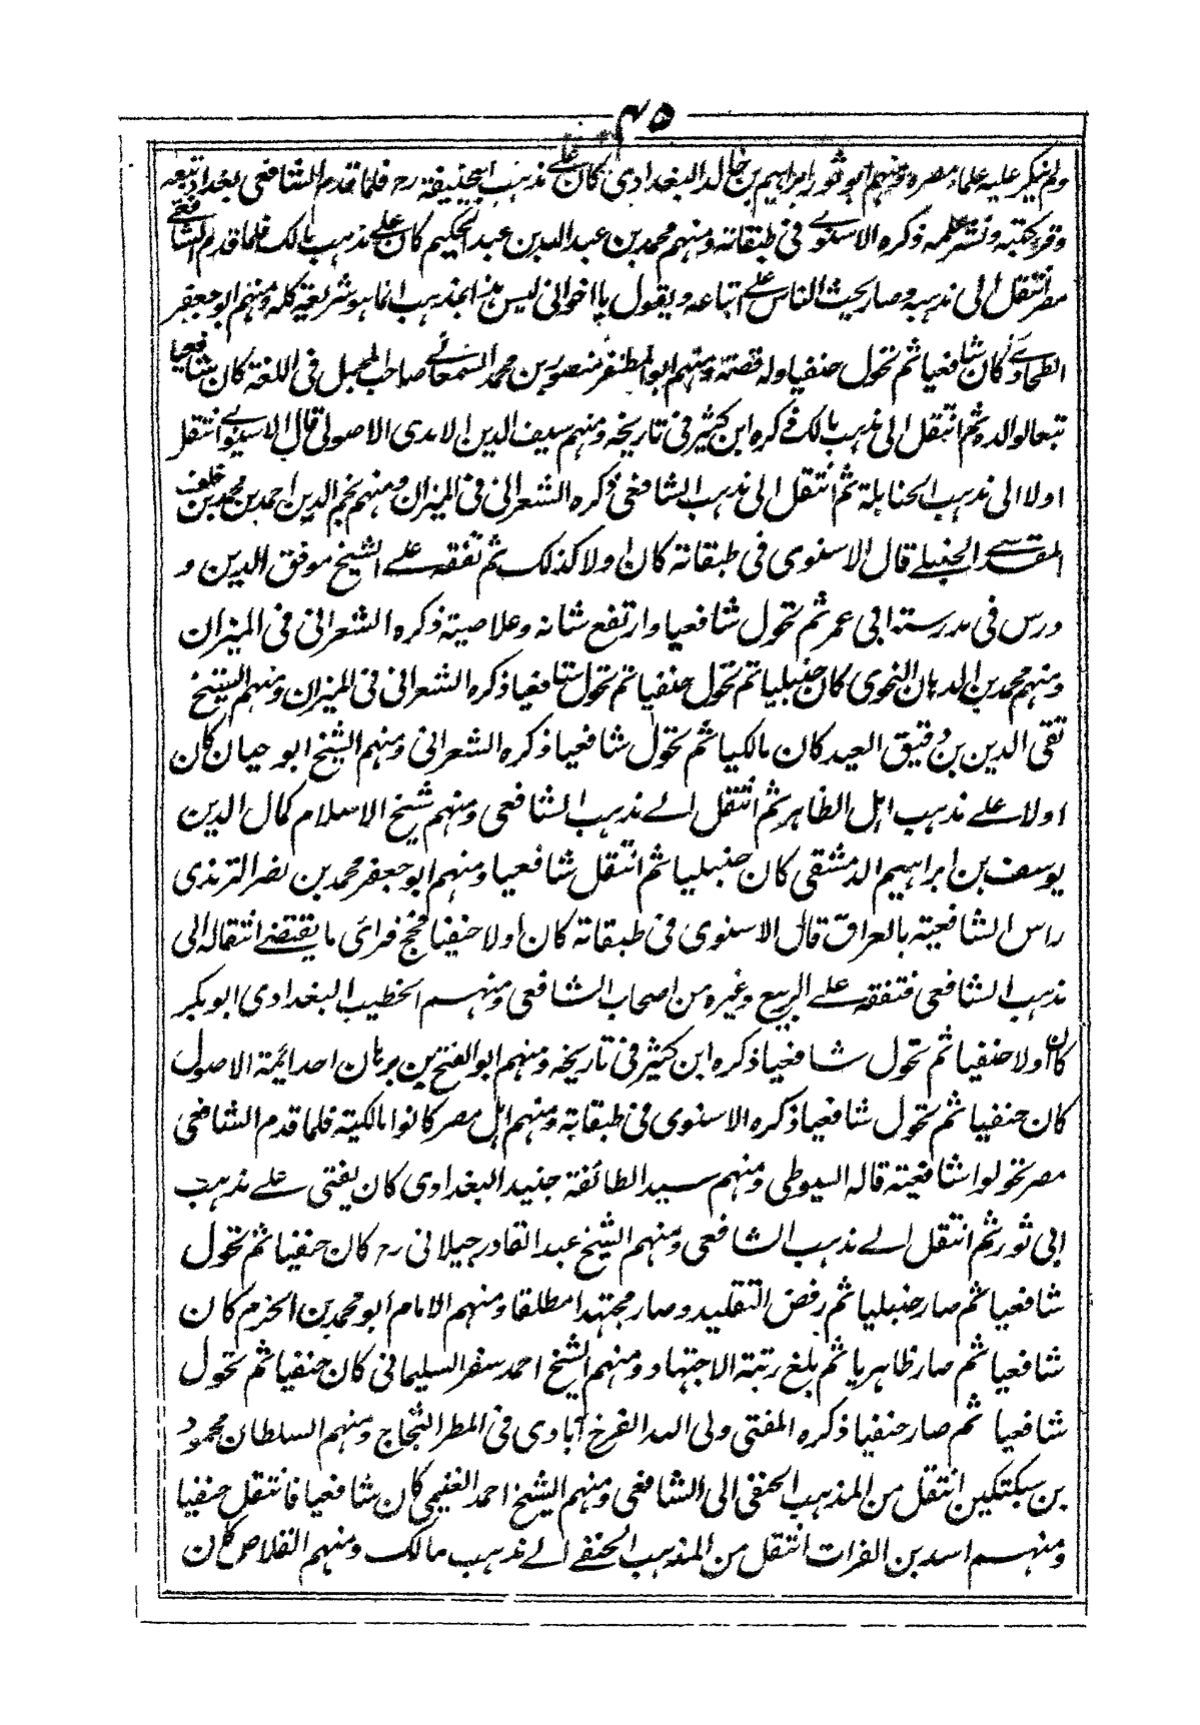 ٤٥
ولم ينكر عليه علماء عصره ومنهم ابو ثور ابراهيم بن خالد البغدادي كان على مذهب ابيحنيفة رح فلما قدم الشافعي بغداد تبعه
وقرء كتبه ونشر علمه ذكره الاسنوي في طبقاته ومنهم محمد بن عبد الله بن عبد الحكيم كان على مذهب مالك فلما قدم الشافعي
مصر انتقل الى مذهبه وصار يحث الناس على اتباعه ويقول يا اخواني ليس هذا بمذهب انما هو شريعة كله ومنهم ابو جعفر
الطحاوي كان شافعيا ثم تحول حنفيا وله قصته ومنهم ابو المظفر منصور بن محمد السمعاني صاحب المجمل في اللغة كان شافعيا
تبعا لوالده ثم انتقل الى مذهب مالك ذكره ابن كثير في تاريخه ومنهم سيف الدين الامدي الاصولي قال الاسنوي انتقل
اولا الى مذهب الحنابلة ثم انتقل الى مذهب الشافعي ذكره الشعراني في الميزان ومنهم نجم الدين احمد بن محمد بن خلف
المقدسي الحنبلي قال الاسنوي في طبقاته كان اولا كذلك ثم تفقه على الشيخ موفق الدين و
درس في مدرسته ابي عمر ثم تحول شافعيا وارتفع شانه وعلا صيته ذكره الشعراني في الميزان
ومنهم محمد بن الدهان النحوي كان حنبليا ثم تحول حنفيا ثم تحول شافعيا ذكره الشعراني في الميزان ومنهم الشيخ
تقي الدين بن دقيق العيد كان مالكيا ثم تحول شافعيا ذكره الشعراني ومنهم الشيخ ابو حيان كان
اولا على مذهب اهل الظاهر ثم انتقل الى مذهب الشافعي ومنهم شيخ الاسلام كمال الدين
يوسف بن ابراهيم الدمشقي كان حنبليا ثم انتقل شافعيا ومنهم ابو جعفر محمد بن نصر الترمذي
راس الشافعية بالعراق قال الاسنوي في طبقاته كان اولا حنفيا فحج فرائ ما يقتضي انتقاله الى
مذهب الشافعي فتفقه على الربيع وغيره من اصحاب الشافعي ومنهم الخطيب البغدادي ابو بكر
كان اولا حنفيا ثم تحول شافعيا ذكره ابن كثير في تاريخه ومنهم ابو الفتح بن برهان احد ائمة الاصول
كان حنفيا ثم تحول شافعيا ذكره الاسنوي في طبقاته ومنهم اهل مصر كانوا مالكية فلما قدم الشافعي
مصر تحولوا شافعية قاله السيوطي ومنهم سيد الطائفة جنيد البغدادي كان يفتي على مذهب
ابي ثور ثم انتقل الى مذهب الشافعي ومنهم الشيخ عبد القادر جيلاني رح كان حنفيا ثم تحول
شافعيا ثم صار حنبليا ثم رفض التقليد وصار مجتهدا مطلقا ومنهم الامام ابو محمد بن الحزم كان
شافعيا ثم صار ظاهريا ثم بلغ رتبة الاجتهاد ومنهم الشيخ احمد سفر السليماني كان حنفيا ثم تحول
شافعيا ثم صار حنفيا ذكره المفتي ولي الله الفرخ آبادي في المطر الثجاج ومنهم السلطان محمود
بن سبكتكين انتقل من المذهب الحنفي الى الشافعي ومنهم الشيخ احمد الغنيمي كان شافعيا فانتقل حنفيا
ومنهم اسد بن الفرات انتقل من المذهب الحنفي الى مذهب مالك ومنهم القلاص كان